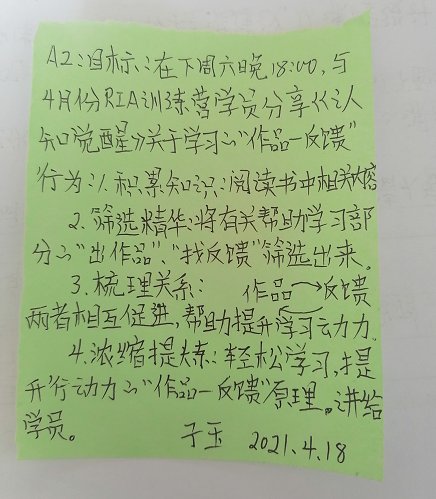 A2:目标:在下周六晚18:00,与
4月份RIA训练营学员分享《认
知觉醒》关于学习"作品-反馈"
行为:1.积累知识:阅读书中相关内容
2.筛选精华:将有关帮助学习部
分"出作品"、"找反馈"筛选出来。
3.梳理关系: 作品→反馈
两者相互促进,帮助提升学习动力。
4.浓缩提炼:轻松学习,提
升行动力"作品-反馈"原理。讲给
学员。
子玉 2021.4.18